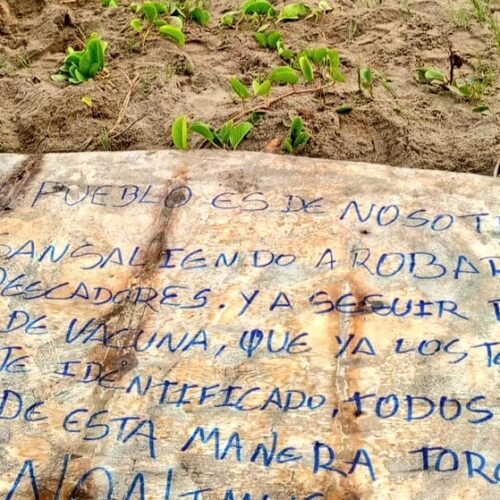 PUEBLO ES DE NOSOT
SANSALIENDO A ROBAR
PESCADORES. Y A SEGUIR
DE VACUNA, QUE YA LOS T
TE IDENTIFICADO, TODOS
DE ESTA MANERA TOR